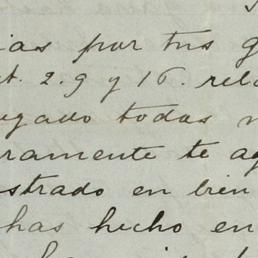 ias por tus g
t. 2. 9 y 16. rela
gado todas
ramente te ag
strado en bien
has hecho en